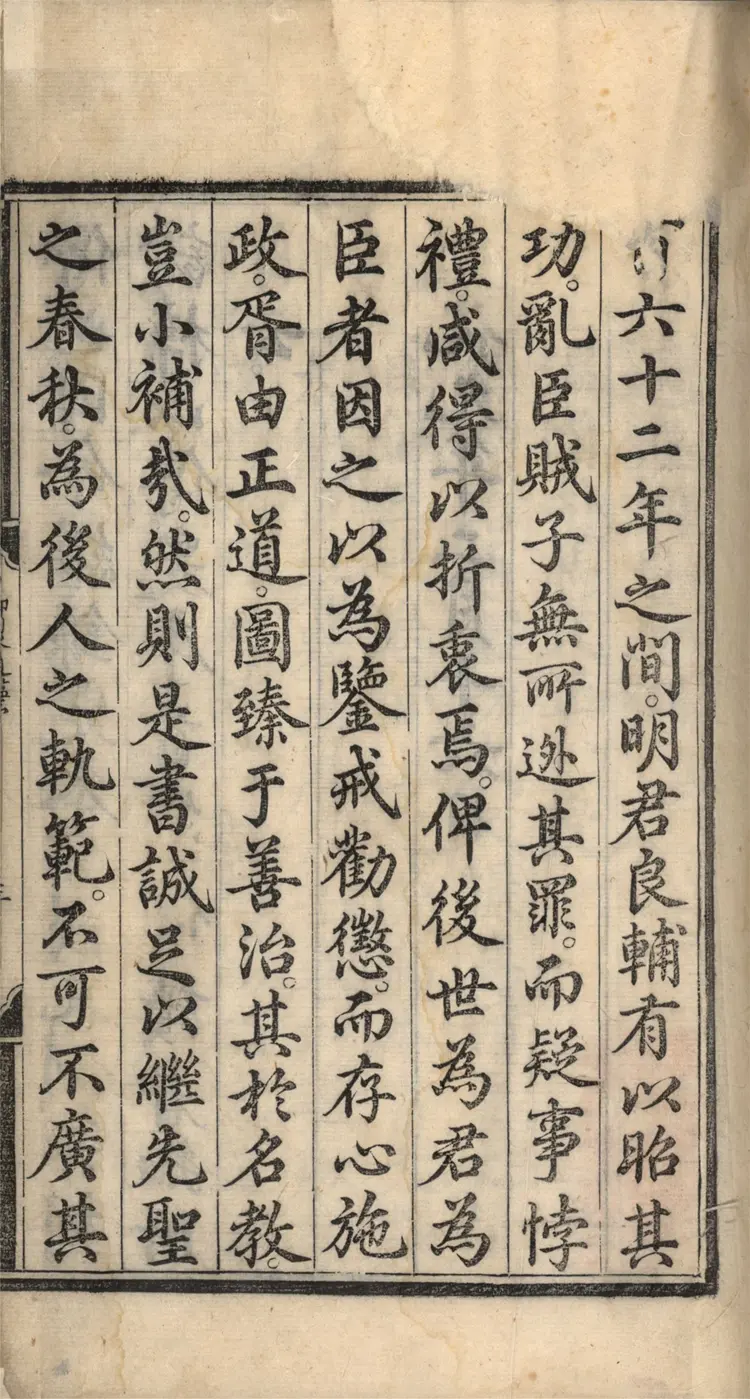 六十二年之間。明君良輔有以昭其
功。亂臣賊子無所逃其罪。而疑事悖
禮。咸得以折衷焉。俾後世為君為
臣者因之以為鑒戒勸懲。而存心施
政。胥由正道。圖臻于善治。其於名教。
豈小補哉。然則是書誠足以繼先聖
之春秋。為後人之軌範。不可不廣其